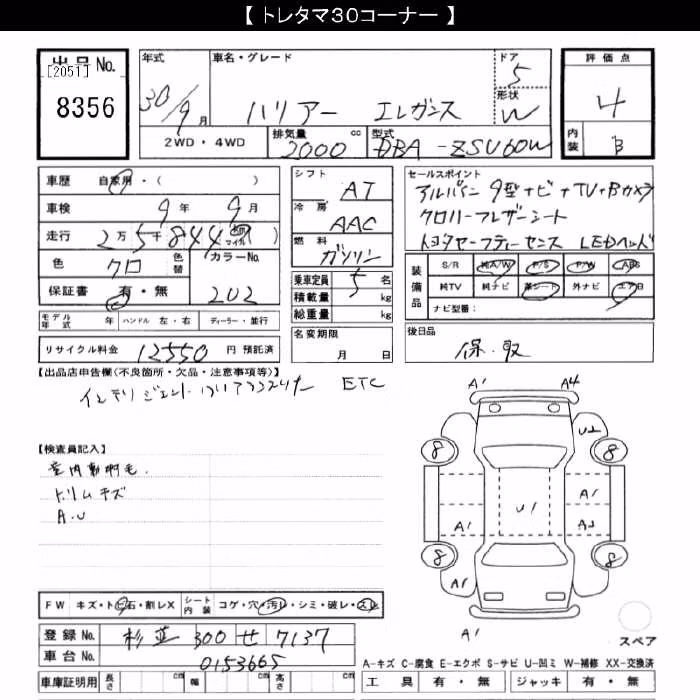 【 トレタマ30コーナー 】
出品No.
[2051]
8356
年式
30/9月
車名・グレード
ハリアー エレガンス
ドア
5
形状
W
評価点
4
内装
B
2WD・4WD
排気量 cc
2000
型式
DBA-ZSU60W
車歴 自家用・( )
車検 9年 9月
走行 2万5千844
マイル
色 クロ
色替
カラーNo.
202
保証書 有・無
シフト
AT
冷房
AAC
燃料
ガソリン
乗車定員 5 名
積載量 kg
総重量 kg
セールスポイント
アルパイン9型ナビ+TV+Bカメラ
クロハーフレザーシート
トヨタセーフティーセンス LEDヘッド
装備品
S/R 純A/W P/S P/W ABS
純TV 純ナビ 革シート 外ナビ エアB
ナビ型番:
モデル年式 年 ハンドル 左・右 ディーラー・並行
名変期限
月 日
後日品
保.取
リサイクル料金 12550 円 預託済
【出品店申告欄(不良箇所・欠品・注意事項等)】
インテリジェントクリアランスソナー ETC
【検査員記入】
室内動物毛.
トリムキズ
A.U
A1 A4
U2
8 8
A1
U1
A1 A2
8 8
A1
A1
スペア
FW キズ・トビ石・割レX シート内装 コゲ・穴・汚レ・シミ・破レ・スレ
登録No. 杉並 300 せ 7137
車台No. 0153665
車庫証明用 長さ cm 幅 cm 高さ cm
A-キズ C-腐食 E-エクボ S-サビ U-凹ミ W-補修 XX-交換済
工具 有・無 ジャッキ 有・無